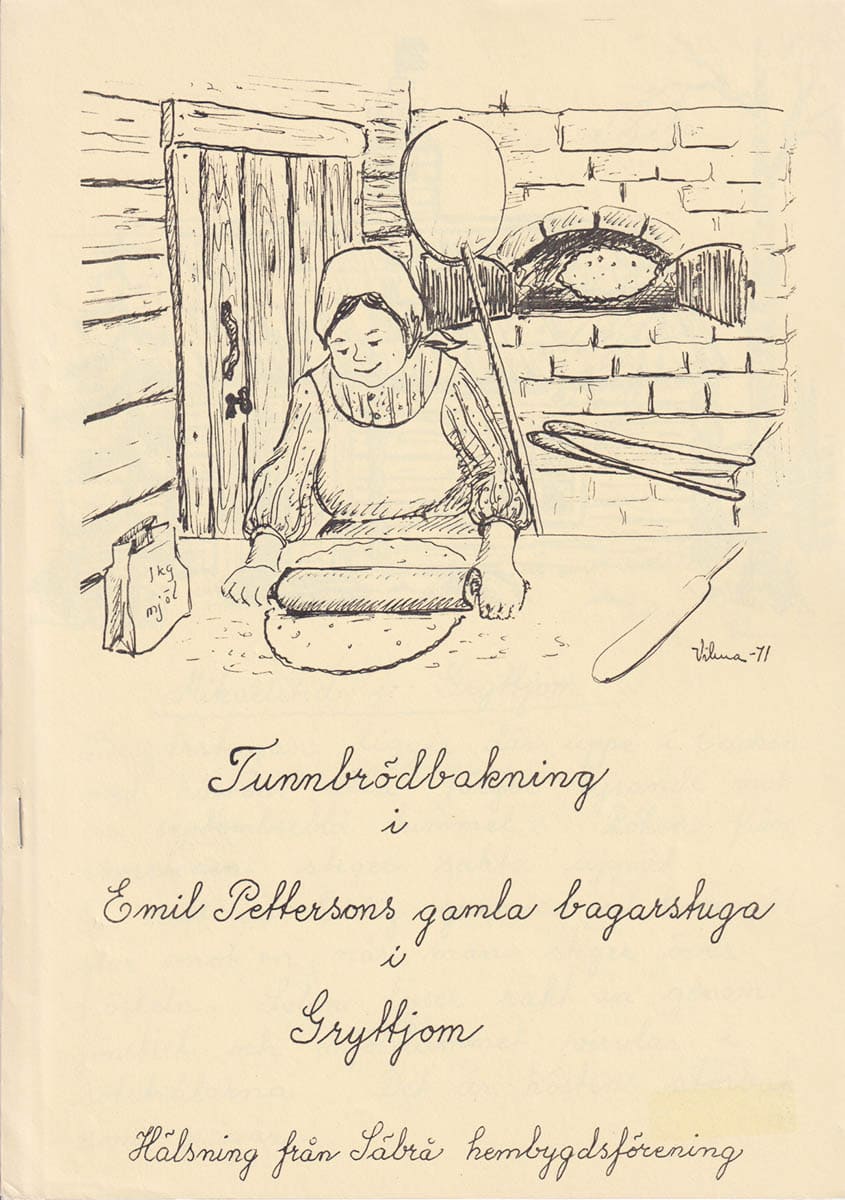 1 kg
mjöl
Vilma -71
Tunnbrödbakning
i
Emil Pettersons gamla bagarstuga
i
Gryttjom
Hälsning från Säbrå hembygdsförening